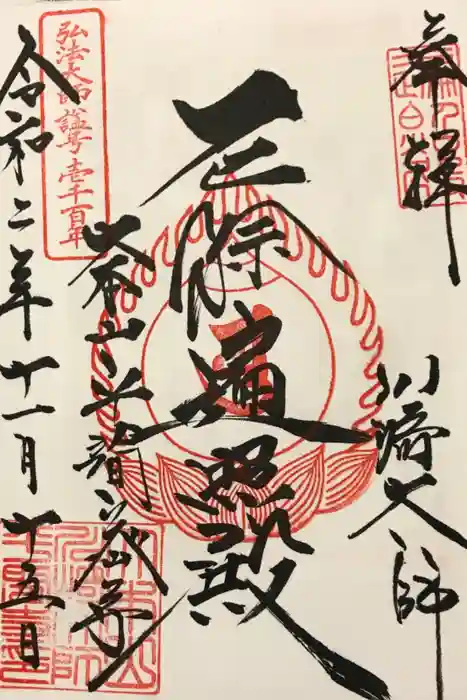 奉拝
川崎大師
厄除遍照殿
大本山平間寺
弘法大師諡号壱千百年
令和二年十一月十五日